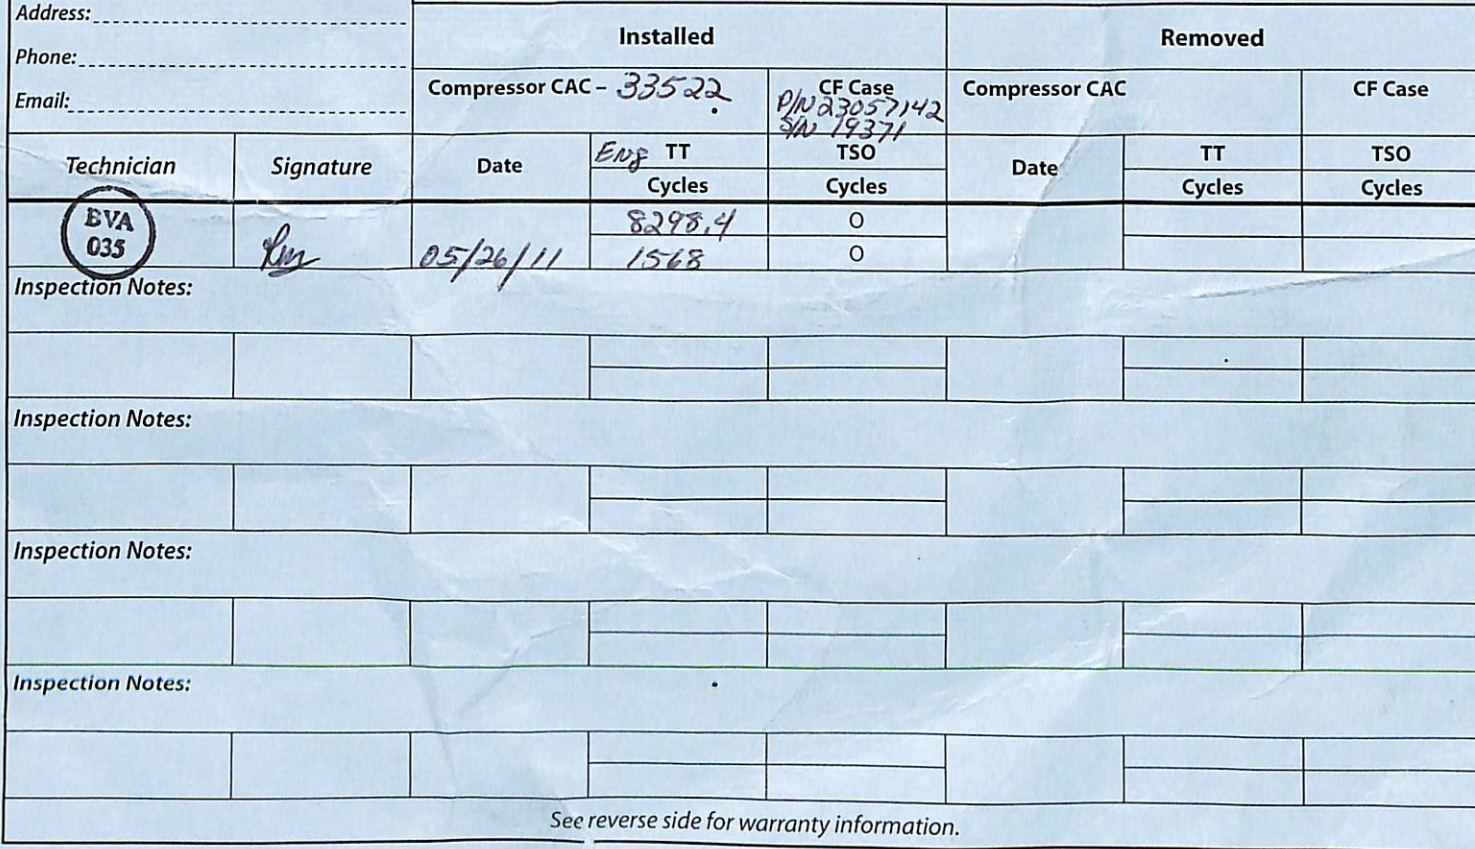 Address:
Phone:
Email:
Installed
Removed
Compressor CAC - 33522
CF Case
P/N 23057142
S/N 19371
Compressor CAC
CF Case
Technician
Signature
Date
Eng TT
Cycles
TSO
Cycles
Date
TT
Cycles
TSO
Cycles
BVA
035
05/26/11
8298.4
1568
0
0
Inspection Notes:
Inspection Notes:
Inspection Notes:
Inspection Notes:
See reverse side for warranty information.